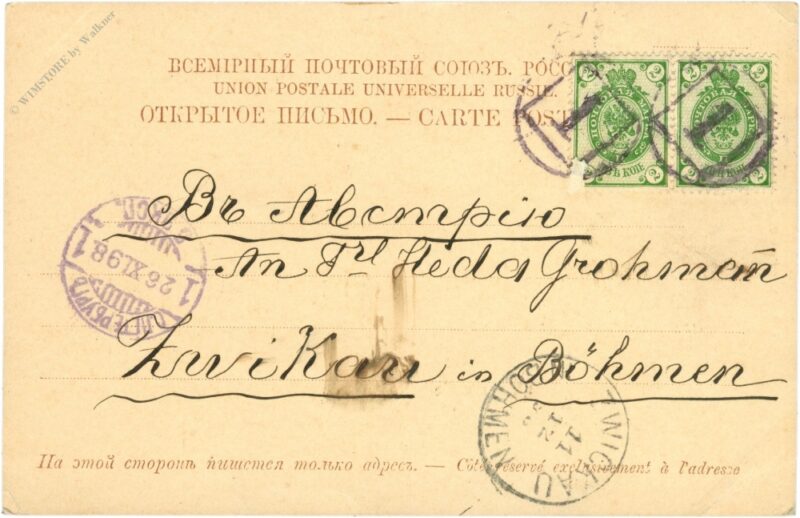 © WIMSTORE by Walkner
ВСЕМІРНЫЙ ПОЧТОВЫЙ СОЮЗЪ. РОСС
UNION POSTALE UNIVERSELLE RUSSIE.
ОТКРЫТОЕ ПИСЬМО. — CARTE POST
2 2
2 2
1 1
2 2
2 2
Въ Австрію
An Frl Heda Grohmañ
Zwikau in Böhmen
1 26 XI 98 1
ZWICKAU
BÖHMEN
На этой сторонѣ пишется только адресъ. — Côté réservé exclusivement à l'adresse